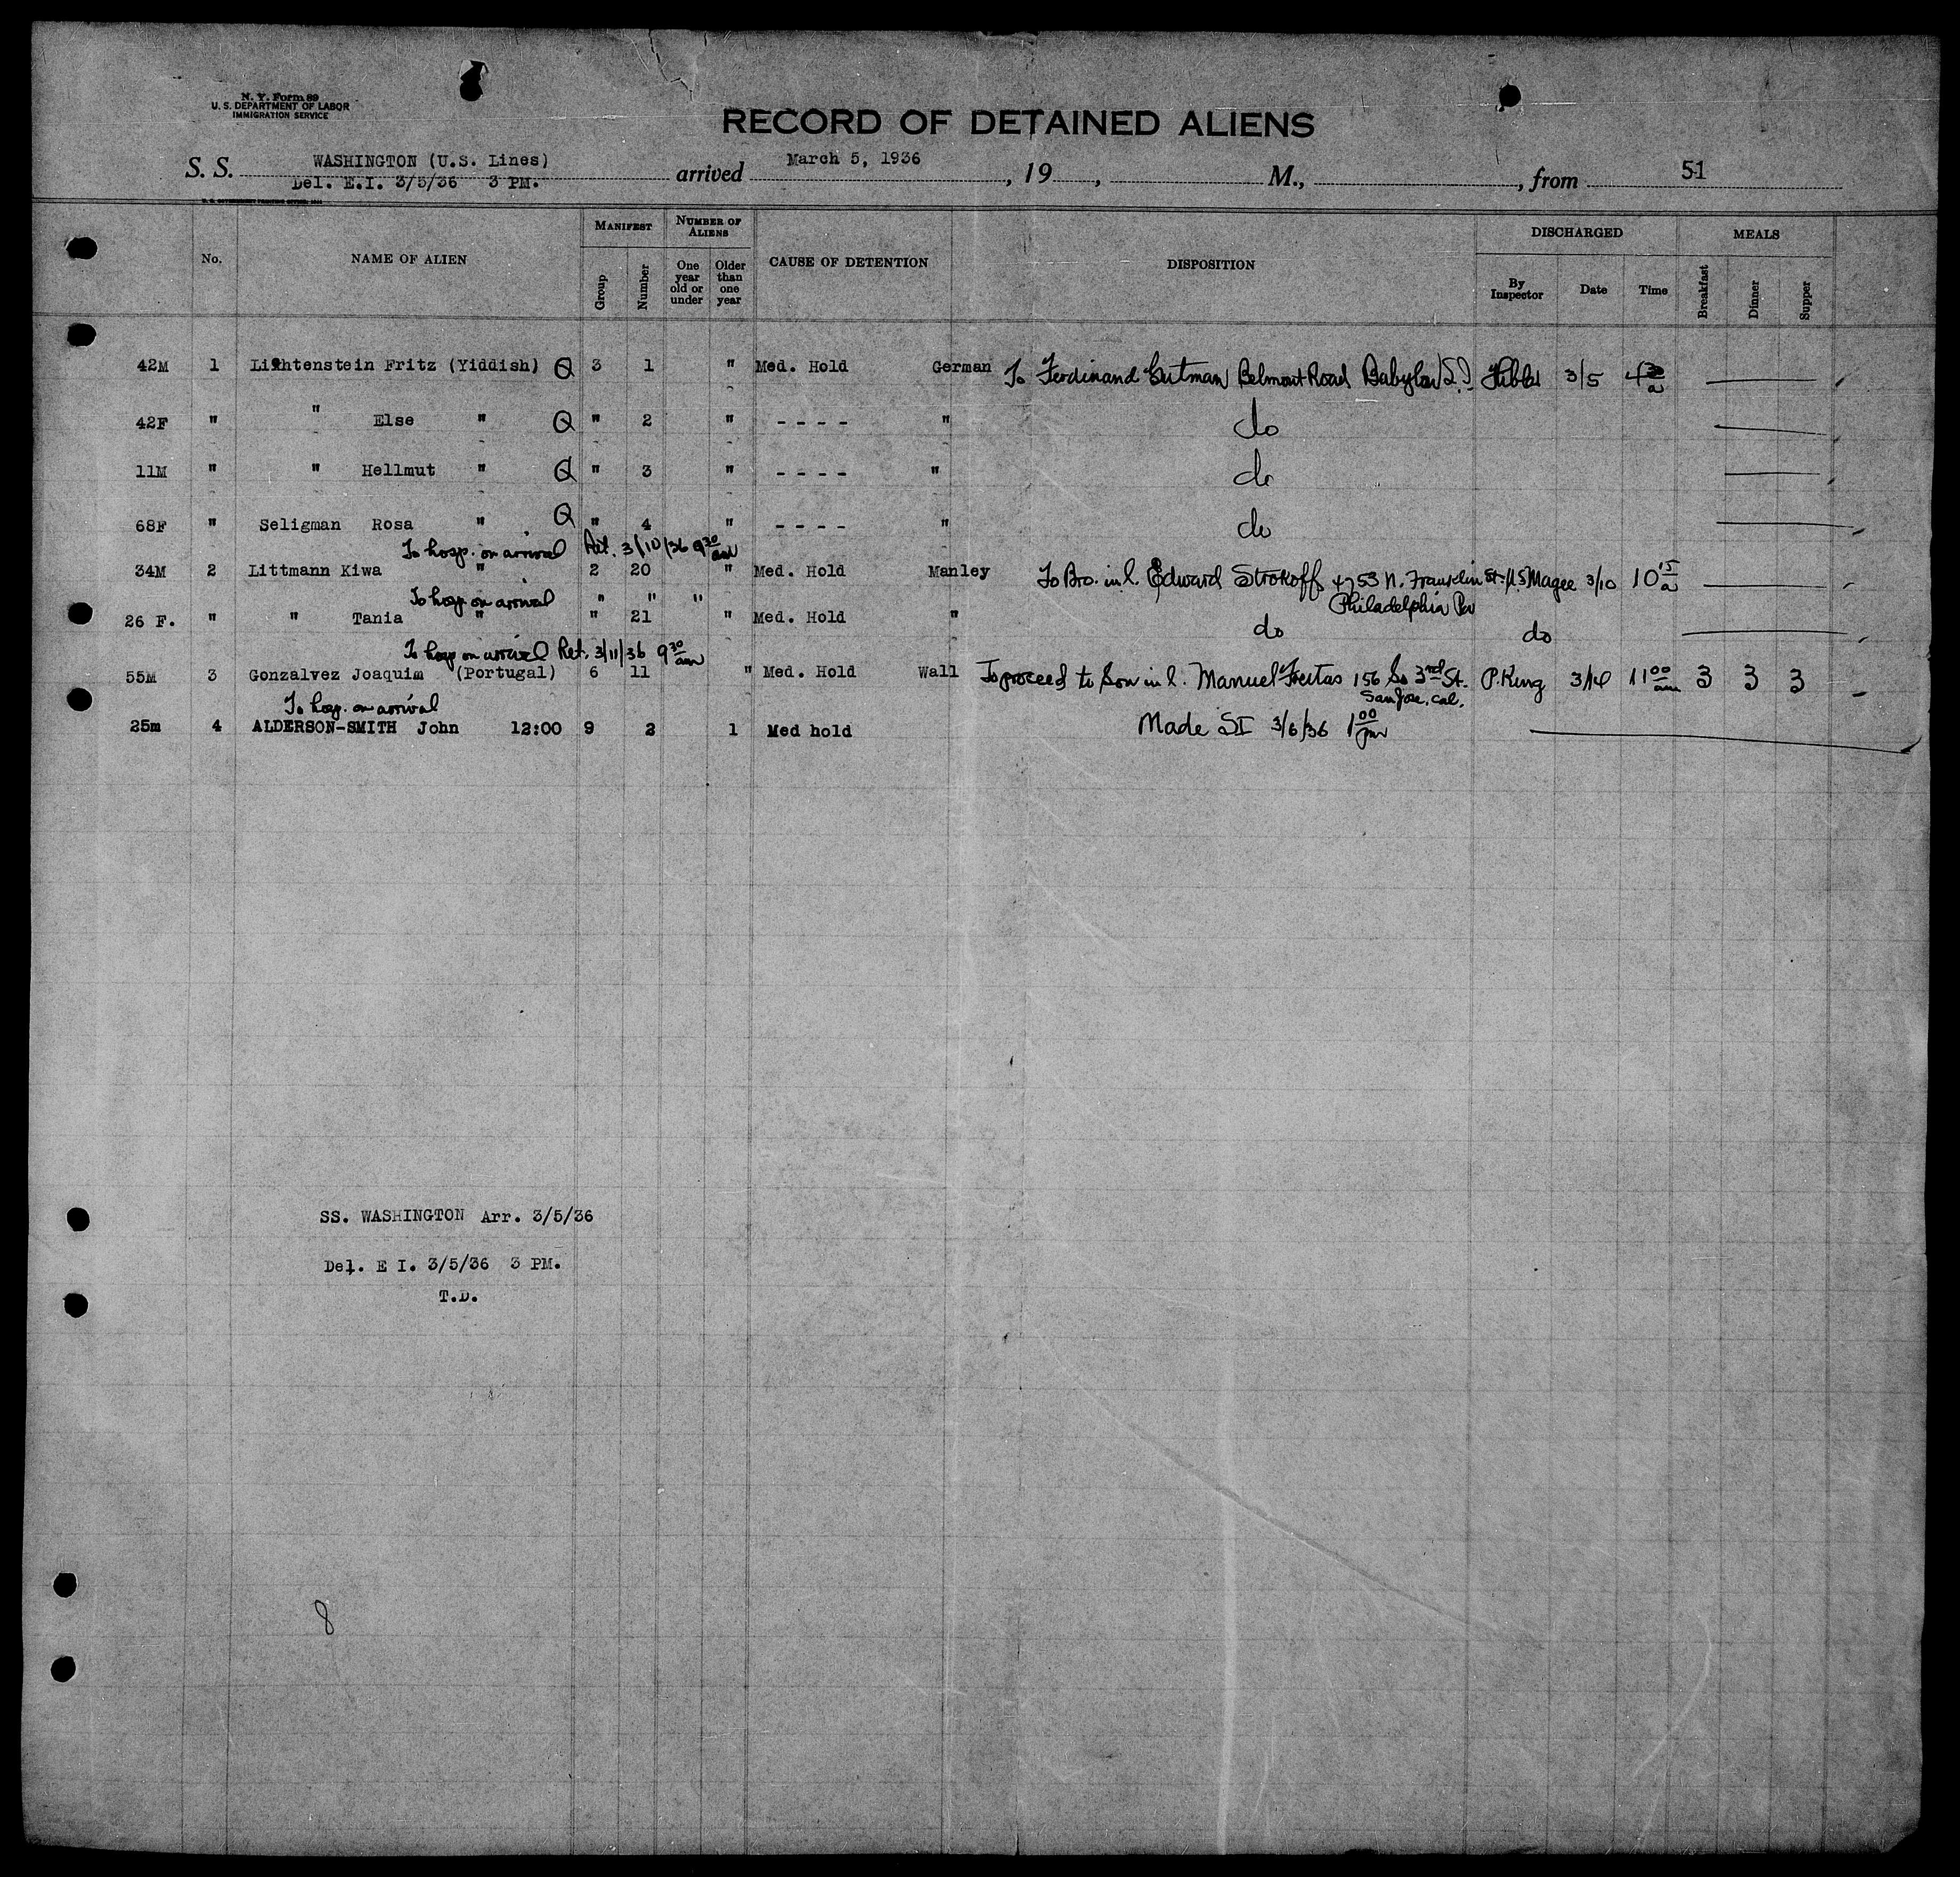 N. Y. Form 89
U. S. DEPARTMENT OF LABOR
IMMIGRATION SERVICE
RECORD OF DETAINED ALIENS
S. S. WASHINGTON (U.S. Lines) arrived March 5, 1936, 19 , M., , from 51
Del. E.I. 3/5/36 3 PM.
MANIFEST NUMBER OF ALIENS DISCHARGED MEALS
No. NAME OF ALIEN Group Number One year old or under Older than one year CAUSE OF DETENTION DISPOSITION By Inspector Date Time Breakfast Dinner Supper
42M 1 Lichtenstein Fritz (Yiddish) Q 3 1 " Med. Hold German To Ferdinand Gutman Belmont Road Babylon L.I. 3/5 4 30 a
42F " " Else " Q " 2 " - - - - " do
11M " " Hellmut " Q " 3 " - - - - " do
68F " Seligman Rosa " Q " 4 " - - - - " do
To hosp. on arrival Ret. 3/10/36 9 30 am
34M 2 Littmann Kiwa " 2 20 " Med. Hold Manley To Bro. in l. Edward Strokoff 4753 N. Franklin St. Magee 3/10 10 15 a
To hosp on arrival " " " Philadelphia Pa
26 F. " " Tania " " 21 " Med. Hold " do do
To hosp on arrival Ret. 3/11/36 9 30 am
55M 3 Gonzalvez Joaquim (Portugal) 6 11 " Med. Hold Wall To proceed to Son in l. Manuel Freitas 156 So 3rd St. P. King 3/14 11 00 am 3 3 3
To hosp. on arrival San Jose, Cal.
25m 4 ALDERSON-SMITH John 12:00 9 2 1 Med hold Made SI 3/6/36 1 00 pm
SS. WASHINGTON Arr. 3/5/36
Del. E I. 3/5/36 3 PM.
T.D.
8